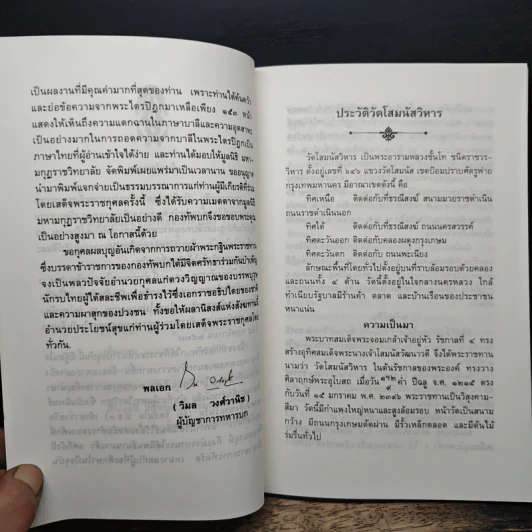 เป็นผลงานที่มีคุณค่ามากที่สุดของท่าน เพราะท่านได้ค้นคว้า
และย่อข้อความจากพระไตรปิฎกมาเหลือเพียง ๑๕๓ หน้า
แสดงให้เห็นถึงความแตกฉานในภาษาบาลีและความอุตสาหะ
เป็นอย่างมากในการถอดความจากบาลีในพระไตรปิฎกเป็น
ภาษาไทยที่ผู้อ่านเข้าใจได้ง่าย และท่านได้มอบให้มูลนิธิ มหา
มกุฏราชวิทยาลัย จัดพิมพ์เผยแพร่มาเป็นเวลานาน ขออนุญาต
นำมาพิมพ์แจกจ่ายเป็นธรรมบรรณาการแก่ท่านผู้มีเกียรติที่ร่วม
โดยเสด็จพระราชกุศลครั้งนี้ ซึ่งได้รับความเมตตาจากมูลนิธิ
มหามกุฏราชวิทยาลัยเป็นอย่างดี กองทัพบกจึงขอขอบพระคุณ
เป็นอย่างสูงมา ณ โอกาสนี้ด้วย
ขอกุศลผลบุญอันเกิดจากการถวายผ้าพระกฐินพระราชทาน
ซึ่งบรรดาข้าราชการของกองทัพบกได้มีจิตศรัทธาร่วมกันบำเพ็ญ
จงเป็นพลวปัจจัยอำนวยกุศลแก่ดวงวิญญาณของบรรพบุรุษ
นักรบไทยผู้ได้สละชีพเพื่อธำรงไว้ซึ่งเอกราชอธิปไตยของชาติ
และความผาสุกของปวงชน ทั้งขอให้ผลานิสงส์แห่งสังฆทานนี้
อำนวยประโยชน์สุขแก่ท่านผู้ร่วมโดยเสด็จพระราชกุศลโดย
ทั่วกัน
พลเอก
( วิมล วงศ์วานิช )
ผู้บัญชาการทหารบก
ประวัติวัดโสมนัสวิหาร
วัดโสมนัสวิหาร เป็นพระอารามหลวงชั้นโท ชนิดราชวร-
วิหาร ตั้งอยู่เลขที่ ๖๔๖ แขวงวัดโสมนัส เขตป้อมปราบศัตรูพ่าย
กรุงเทพมหานคร มีอาณาเขตดังนี้ คือ
ทิศเหนือ ติดต่อกับที่ธรณีสงฆ์ สนามมวยราชดำเนิน
ถนนราชดำเนินนอก
ทิศใต้ ติดต่อกับที่ธรณีสงฆ์ ถนนนครสวรรค์
ทิศตะวันออก ติดต่อกับคลองผดุงกรุงเกษม
ทิศตะวันตก ติดต่อกับ ถนนพะเนียง
ลักษณะพื้นที่โดยทั่วไปตั้งอยู่บนที่ราบล้อมรอบด้วยคลอง
และถนนทั้ง ๔ ด้าน วัดนี้ตั้งอยู่ในใจกลางนครหลวง ใกล้
ทำเนียบรัฐบาลมีร้านค้า ตลาด และบ้านเรือนของประชาชน
หนาแน่น
ความเป็นมา
พระบาทสมเด็จพระจอมเกล้าเจ้าอยู่หัว รัชกาลที่ ๔ ทรง
สร้างอุทิศสมเด็จพระนางเจ้าโสมนัสวัฒนาวดี จึงได้พระราชทาน
นามว่า วัดโสมนัสวิหาร ในต้นรัชกาลของพระองค์ ทรงวาง
ศิลาฤกษ์พระอุโบสถ เมื่อวัน ค่ำ ปีฉลู จ.ศ. ๑๒๑๕ ตรง
กับวันที่ ๑๕ มกราคม พ.ศ. ๒๓๙๖ พระราชทานเป็นวิสุงคาม-
สีมา วัดนี้มีกำแพงใหญ่หนาและสูงล้อมรอบ หน้าวัดเป็นสนาม
กว้าง มีถนนกรุงเกษมตัดผ่าน มีรั้วเหล็กตลอด และมีต้นไม้
ร่มรื่นทั่วไป